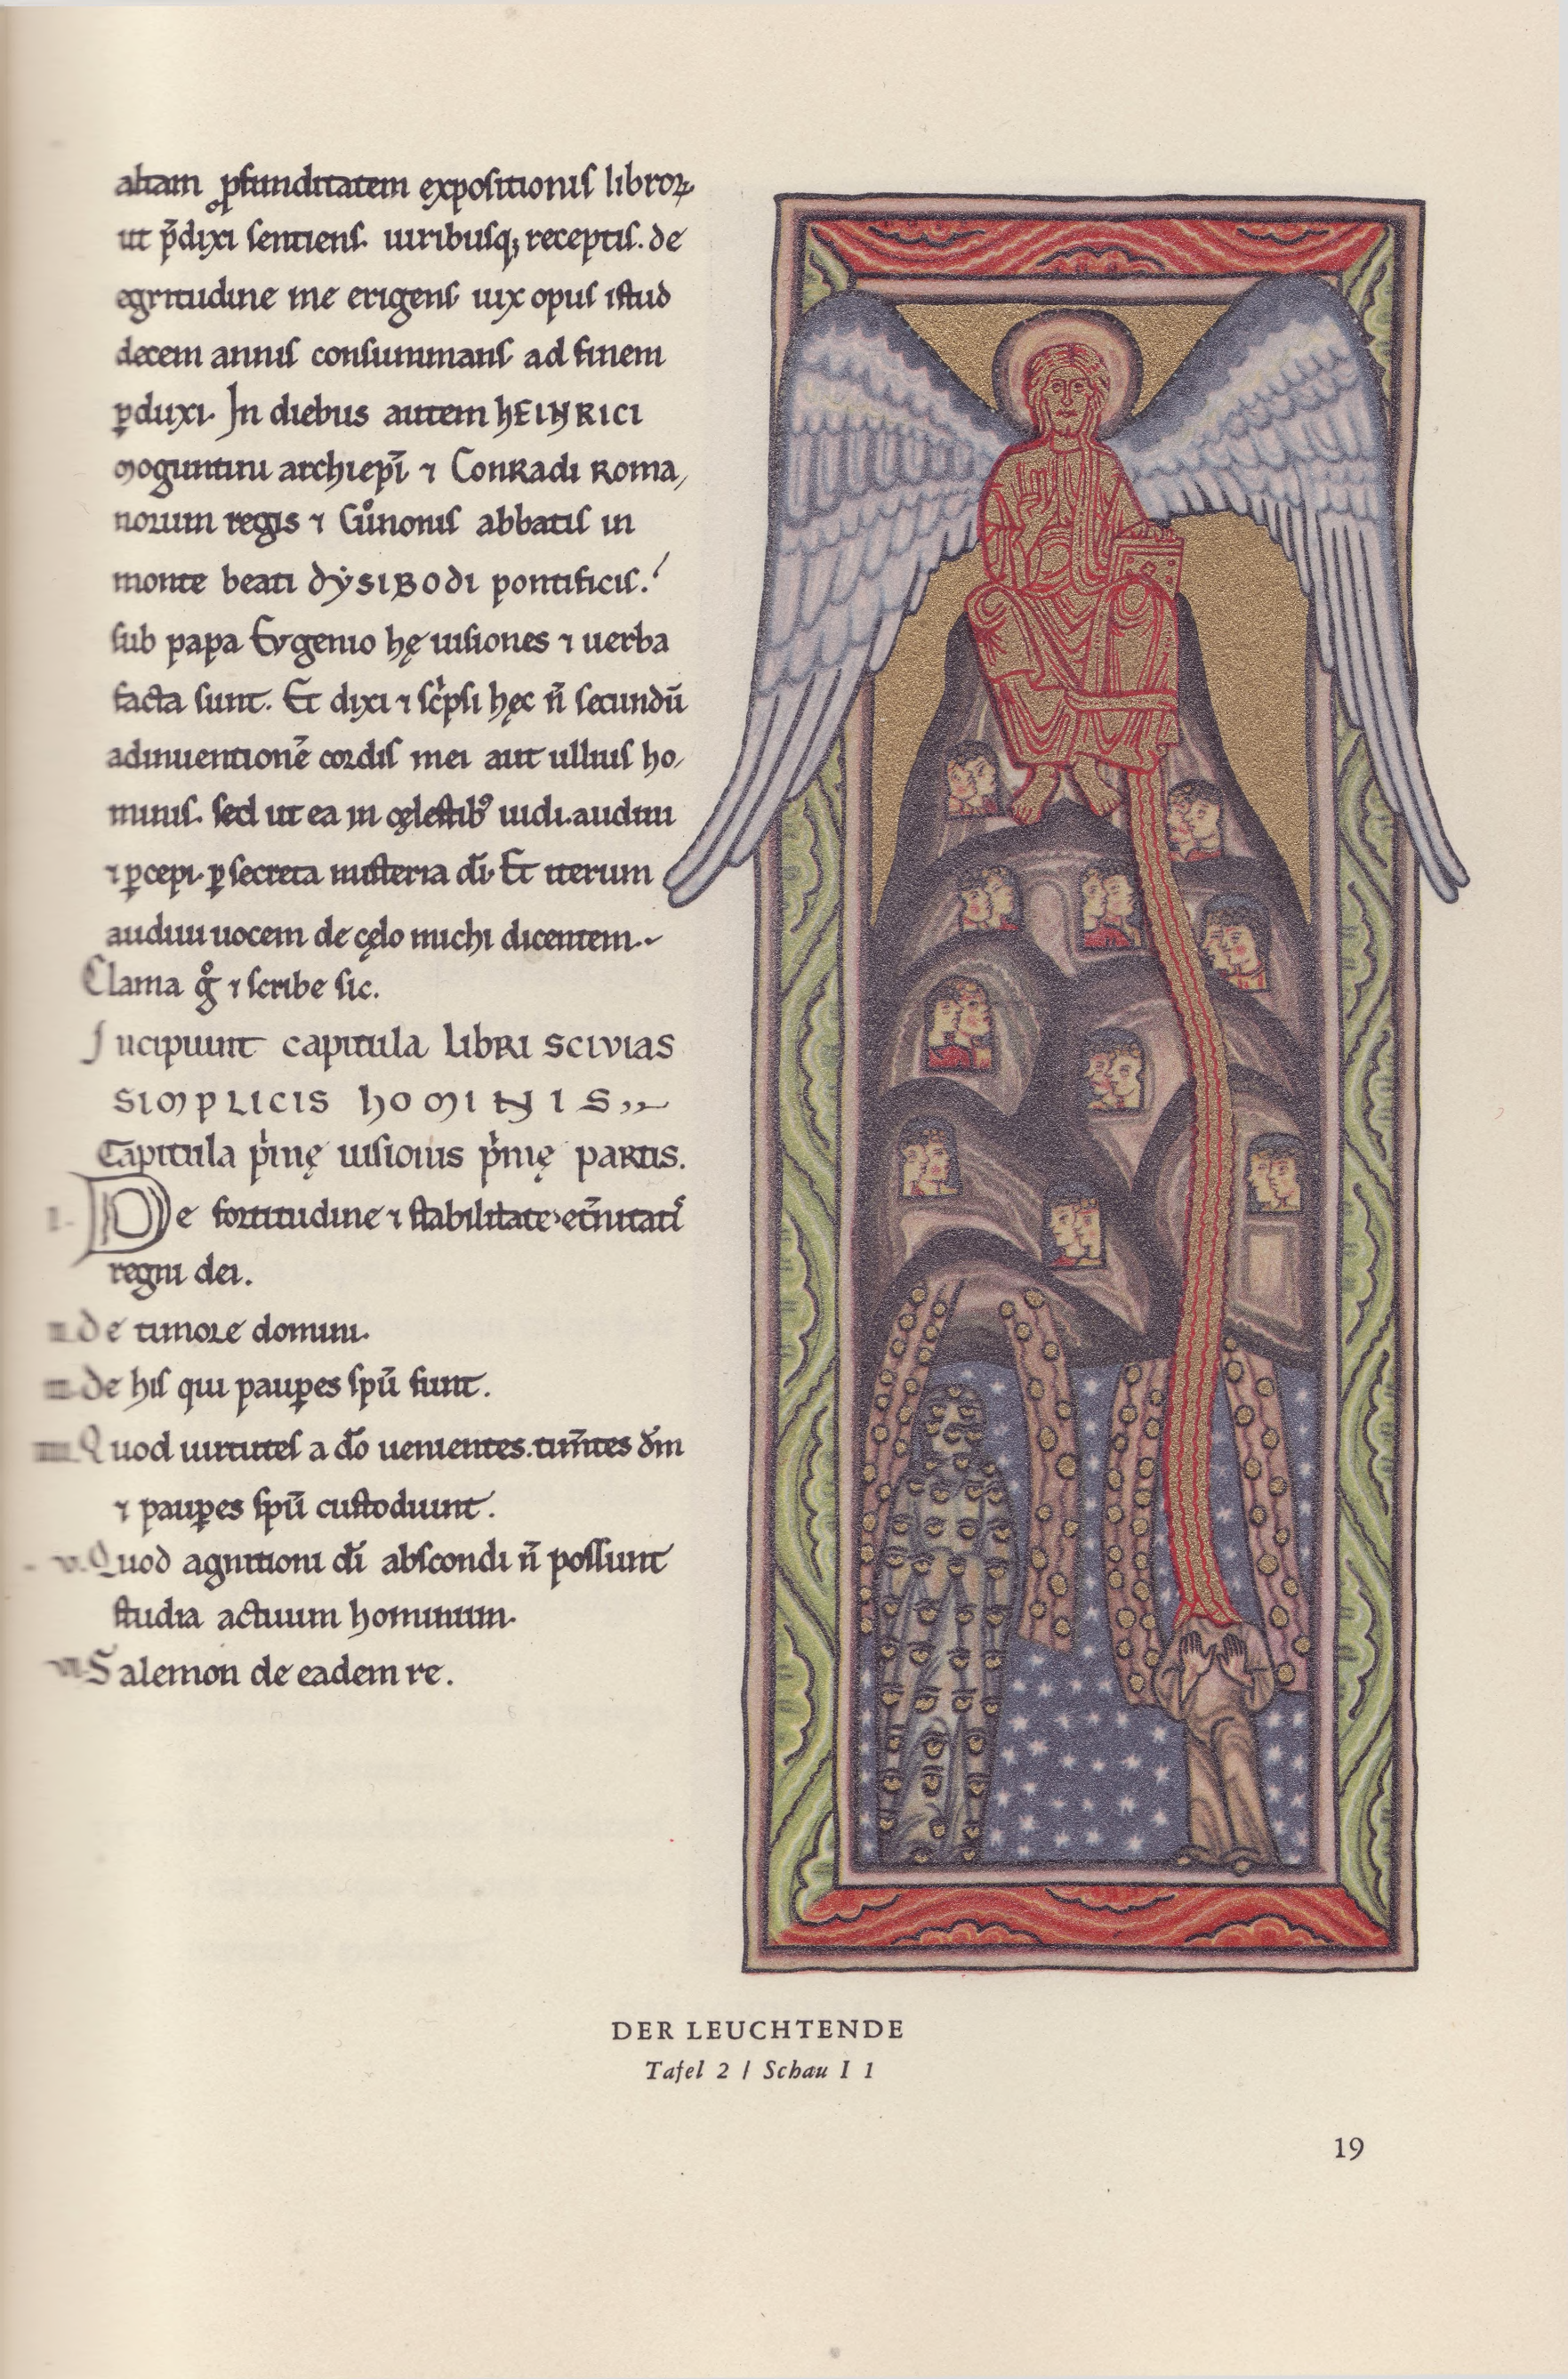 altam ꝓfunditatem expositionis libroꝝ
ut p̄dixi sentiens. uiribusq; receptis. de
egritudine me erigens uix opus istud
decem annis consummans ad finem
ꝑduxi. In diebus autem HEINRICI
moguntini archiep̄i ⁊ Conradi Roma,
norum regis ⁊ Cůnonis abbatis in
monte beati DẎSIBODI pontificis.
sub papa Evgenio hę uisiones ⁊ uerba
facta sunt. Et dixi ⁊ sc̍psi hęc n̄ secundū
adinuentionē cordis mei aut ullius ho,
minis. sed ut ea in cęlestibꝰ uidi. audiui
⁊ ꝑcepi. ꝑ secreta misteria dī. Et iterum
audiui uocem de cęlo michi dicentem.
Clama gͦ ⁊ scribe sic.
Incipiunt capitula LIBRI SCIVIAS
SIMPLICIS HOMINIS
Capitula p̍mę uisionis p̍mę partis.
I. De fortitudine ⁊ stabilitate et̄nitatis
regni dei.
II. De timore domini.
III. De his qui pauꝑes spū sunt.
IIII. Quod uirtutes a dō uenientes. tim̄tes dm̄
⁊ pauꝑes spū custodiunt.
V. Quod agnitioni dī abscondi n̄ possunt
studia actuum hominum.
VI. Salemon de eadem re.
DER LEUCHTENDE
Tafel 2 / Schau I 1
19